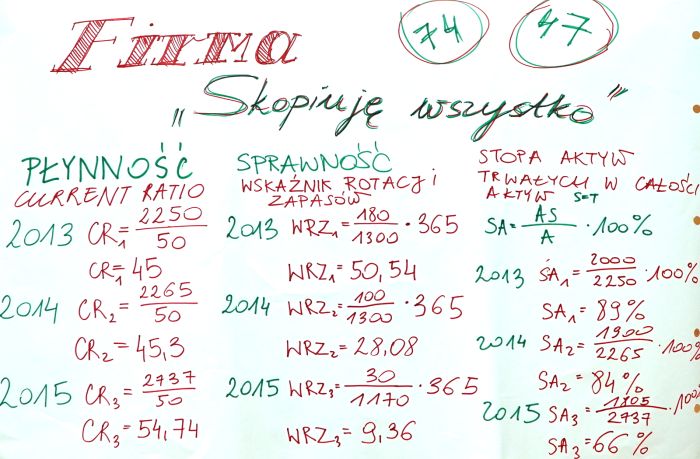 Firma
74
47
"Skopiuję wszystko"
PŁYNNOŚĆ
CURRENT RATIO
2013 CR₁ = 2250/50
CR₁ = 45
2014 CR₂ = 2265/50
CR₂ = 45,3
2015 CR₃ = 2737/50
CR₃ = 54,74
SPRAWNOŚĆ
WSKAŹNIK ROTACJI
ZAPASÓW
2013 WRZ₁ = 180/1300 · 365
WRZ₁ = 50,54
2014 WRZ₂ = 100/1300 · 365
WRZ₂ = 28,08
2015 WRZ₃ = 30/1170 · 365
WRZ₃ = 9,36
STOPA AKTYW
TRWAŁYCH W CAŁOŚCI
AKTYW S=T
SA = AS/A · 100%
2013 SA₁ = 2000/2250 · 100%
SA₁ = 89%
2014 SA₂ = 1900/2265 · 100%
SA₂ = 84%
2015 SA₃ = 1805/2737 · 100%
SA₃ = 66%